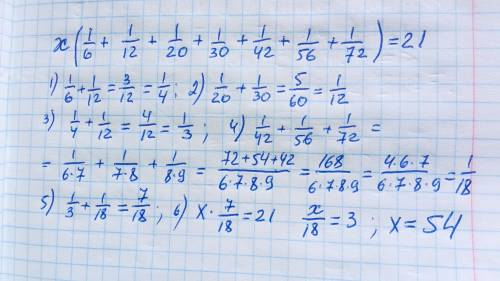 x(1/6 + 1/12 + 1/20 + 1/30 + 1/42 + 1/56 + 1/72) = 21
1) 1/6 + 1/12 = 3/12 = 1/4; 2) 1/20 + 1/30 = 5/60 = 1/12
3) 1/4 + 1/12 = 4/12 = 1/3; 4) 1/42 + 1/56 + 1/72 =
= 1/(6·7) + 1/(7·8) + 1/(8·9) = (72+54+42)/(6·7·8·9) = 168/(6·7·8·9) = (4·6·7)/(6·7·8·9) = 1/18
5) 1/3 + 1/18 = 7/18; 6) x · 7/18 = 21 x/18 = 3; x = 54